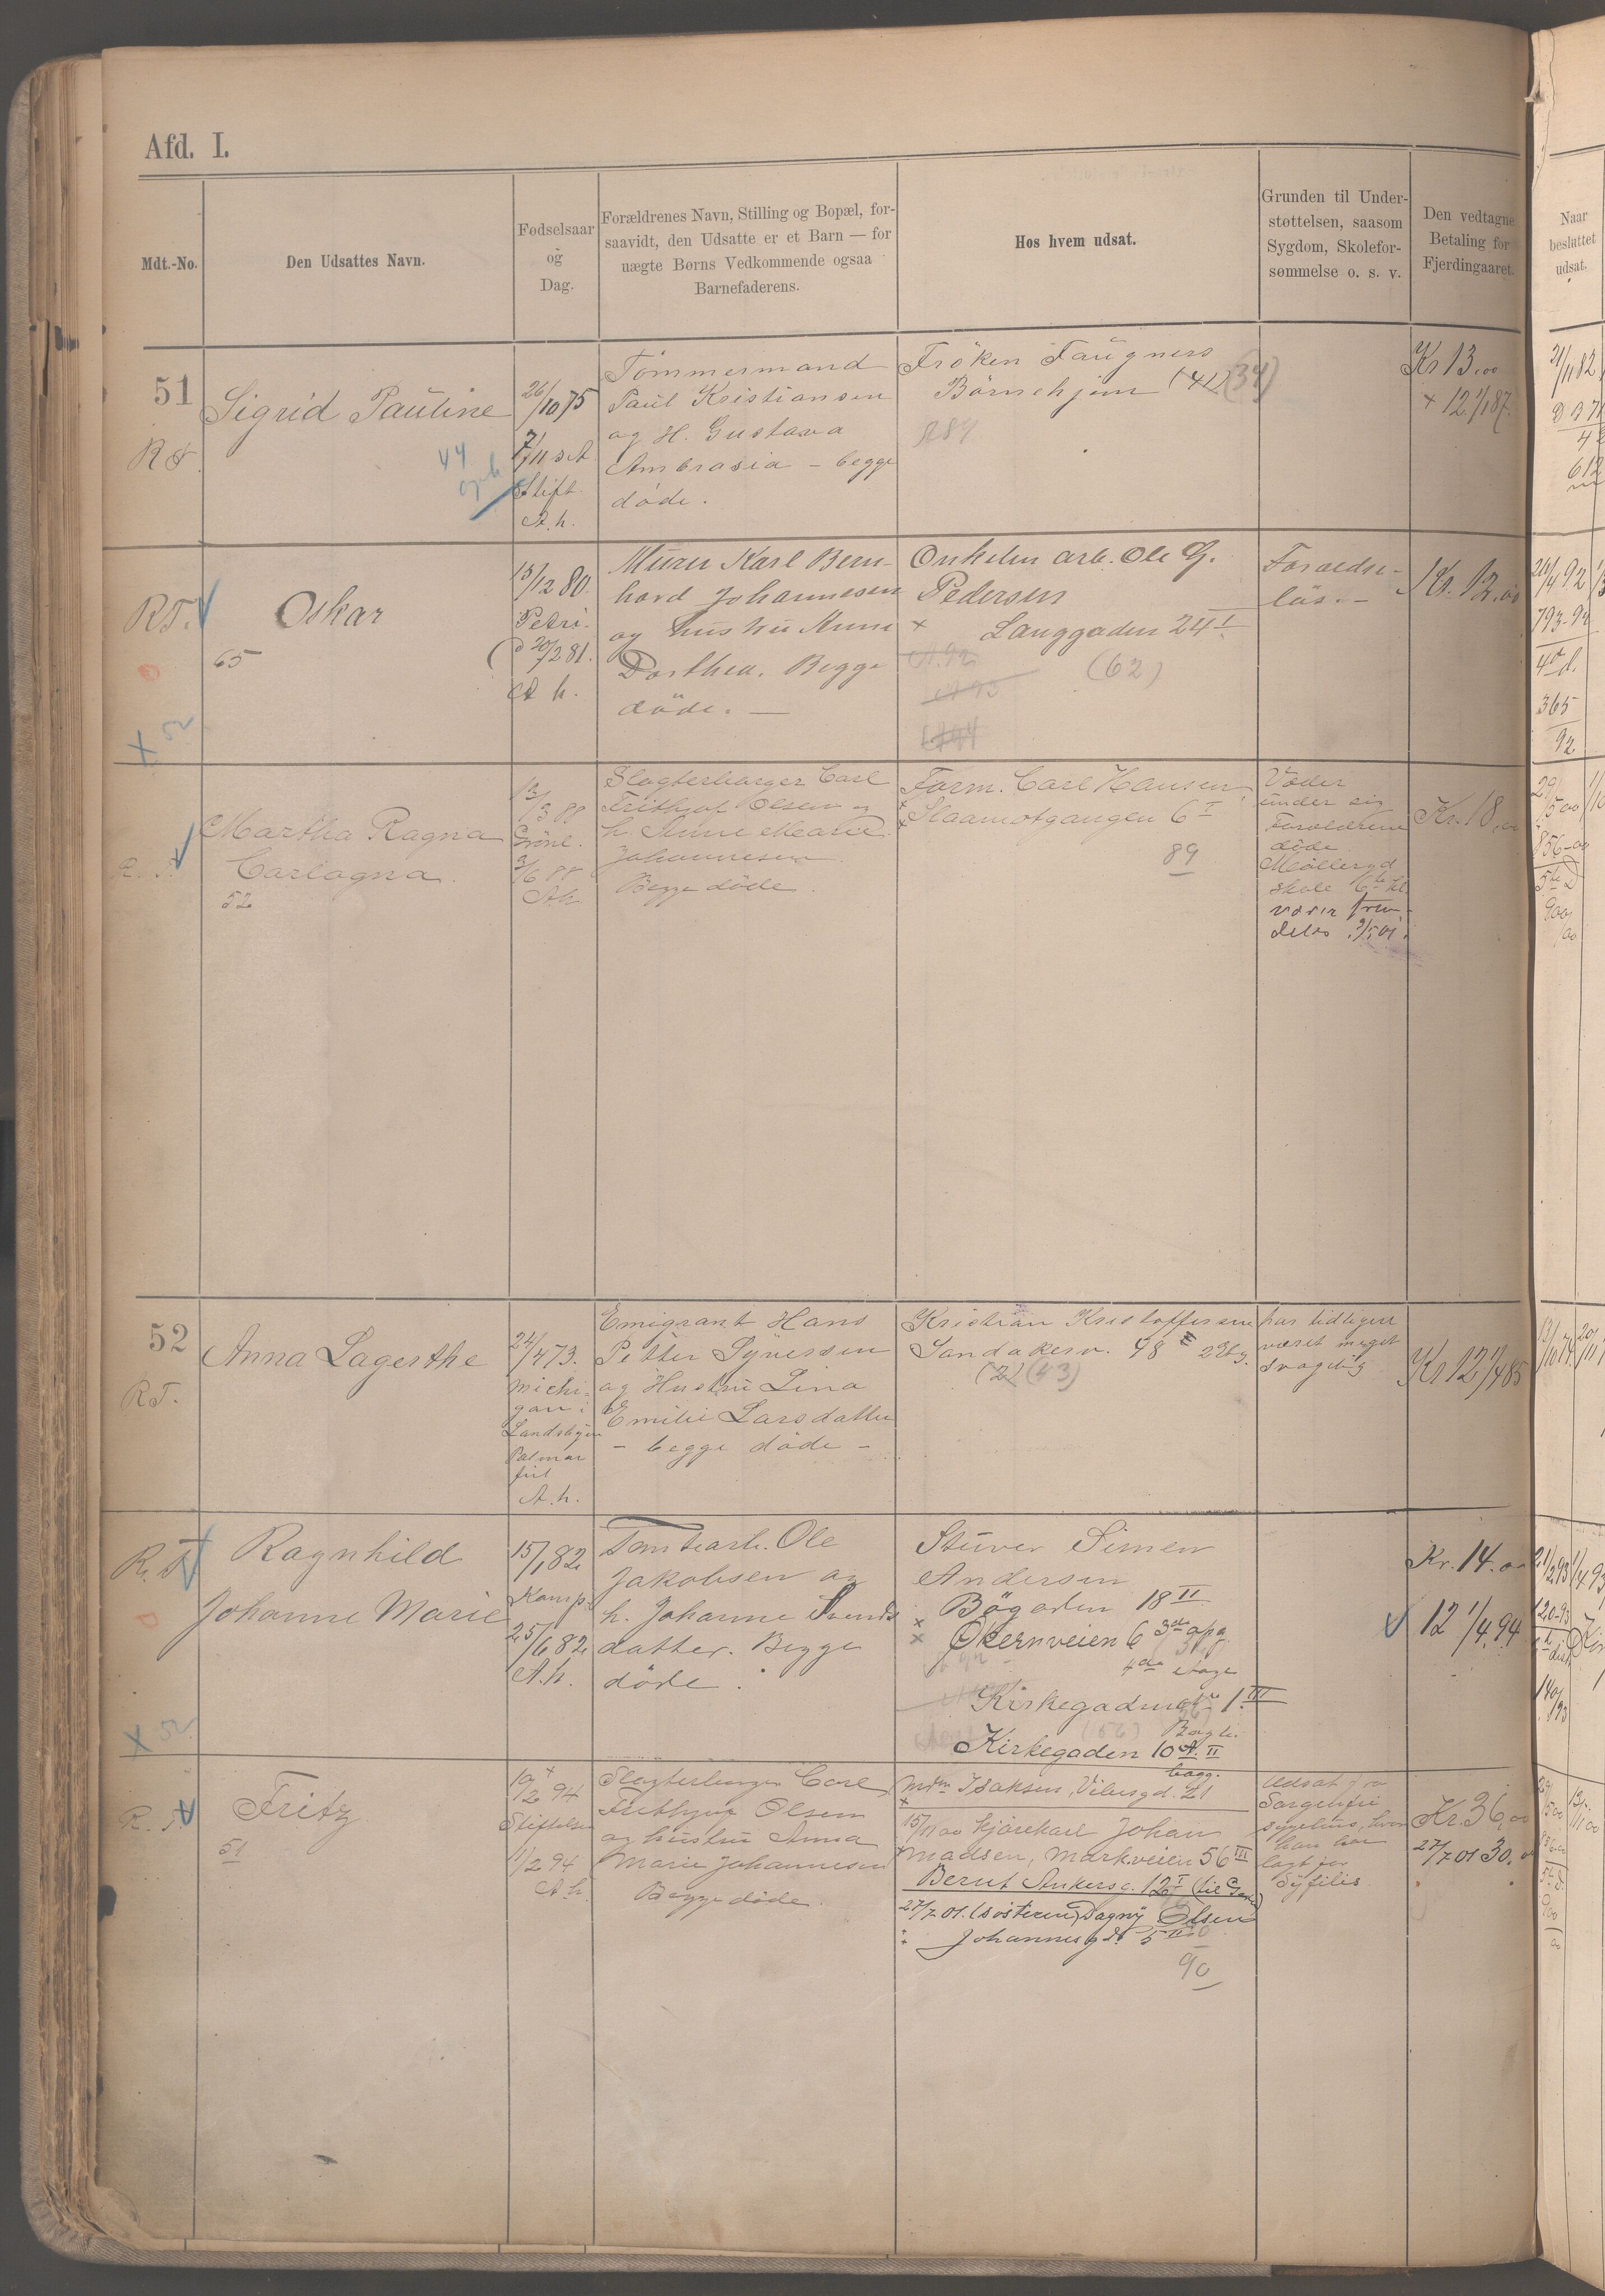 Afd. I.
Mdt.-No.
Den Udsattes Navn.
Fødselsaar
og
Dag.
Forældrenes Navn, Stilling og Bopæl, for-
saavidt, den Udsatte er et Barn — for
uægte Børns Vedkommende ogsaa
Barnefaderens.
Hos hvem udsat.
Grunden til Under-
støttelsen, saasom
Sygdom, Skolefor-
sømmelse o. s. v.
Den vedtagne
Betaling for
Fjerdingaaret.
Naar
besluttet
udsat.
51
Sigrid Pauline
44
26/10 75
7/11
Stift.
A. h.
Tömmermand
Paul Kristiansen
og H. Gustava
Ambrosia - begge
döde.
Fröken Faugners
Börnehjem (41) (34)
Kr 13.00
+ 12 1/1 87.
21/11 82
R.T.
Oskar
65
13/12 80.
Petri.
20/2 81.
A h.
Murer Karl Bern-
hard Johannesen
og hustru Anne
Dorthea. Begge
döde. —
Onkelen arb. Ole G.
Pedersen
× Langgaden 24 I
A. 92
(62)
A 93
Forældre-
lös. -
Kr. 12.00
26/4 92
793-92
365
92
× 52
Martha Ragna
Carlagna.
52
13/3 88
Grönl.
3/6 88
A h
Slagterborger Carl
Frithjof Olsen og
h. Anne Marie
Johannesen
Begge döde.
Form. Carl Hansen,
Slaamotgangen 6 I
89
Væder
under sig
Forældrene
döde
Möllergd
skole 6te kl
værer frem-
deles 9/5 01.
Kr. 18.00
29/5 00
856-00
900
52
R.T.
Anna Lagerthe
24/4 73.
Michi-
gan i
Landsbyen
Palmar
A. h.
Emigrant Hans
Petter Syversen
og Hustru Lina
Emilie Larsdatter
- begge döde -
Kristian Kristoffersen
Sandakerv. 48 2 Etg.
(2) (43)
har tidligere
været meget
svagelig
Kr 12 1/4 85
R. T.
Ragnhild
Johanne Marie
15/1 82
Kamp.
25/6 82
A. h.
Tomtearb. Ole
Jakobsen og
h. Johanne Svends
datter. Begge
döde.
Stuver Simen
Andersen
× Bögaden 18 II
× Økernveien 6 3die opg.
4de etage
Kirkegaden 1 III
Kirkegaden 10 A. II
bagg.
Kr. 14.00
12 1/4 94
21/2 93
1/4 93
120-93
× 52
R. T.
Fritz
51
10/2 94
Stiftelsen
11/2 94
A h.
Slagterborger Carl
Frithjof Olsen
og hustru Anna
Marie Johannesen
Begge döde.
Mdm Isaksen, Vibesgd. 21
15/11 00 Kjörekarl Johan
Madsen, Markveien 56 III
Bernt Ankersg. 12 I
27/7 01. (søsteren) Dagny Olsen
Johannesgd. 5 II
90
Udsat fra
han har
lagt for
Syfilis
Kr. 36.00
27/7 01 30.